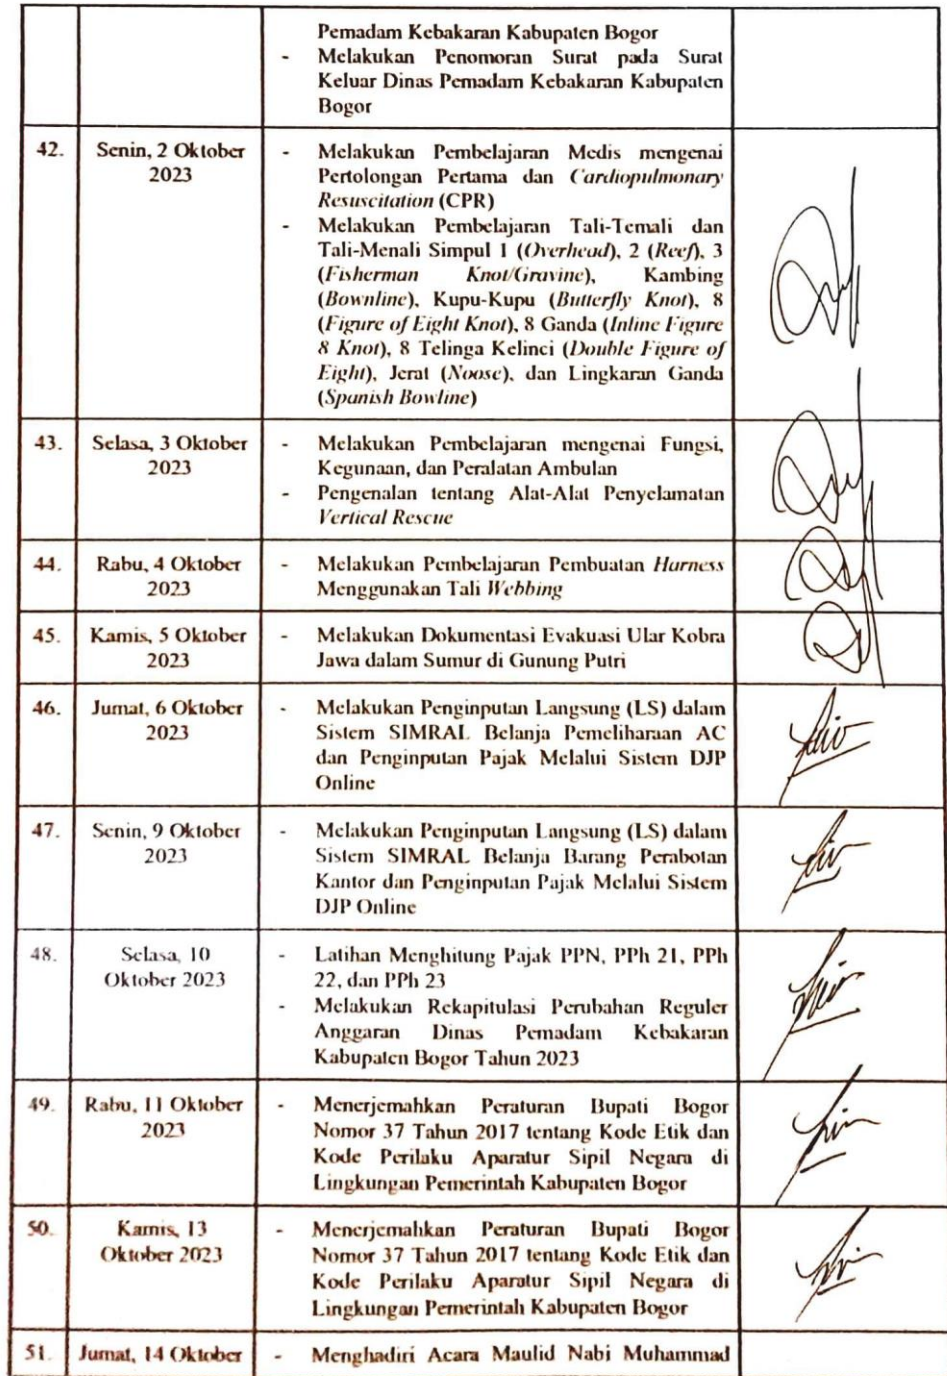 Pemadam Kebakaran Kabupaten Bogor
- Melakukan Penomoran Surat pada Surat
Keluar Dinas Pemadam Kebakaran Kabupaten
Bogor
42. Senin, 2 Oktober
2023
- Melakukan Pembelajaran Medis mengenai
Pertolongan Pertama dan Cardiopulmonary
Resuscitation (CPR)
- Melakukan Pembelajaran Tali-Temali dan
Tali-Menali Simpul 1 (Overhead), 2 (Reef), 3
(Fisherman Knot/Gravine), Kambing
(Bownline), Kupu-Kupu (Butterfly Knot), 8
(Figure of Eight Knot), 8 Ganda (Inline Figure
8 Knot), 8 Telinga Kelinci (Double Figure of
Eight), Jerat (Noose), dan Lingkaran Ganda
(Spanish Bowline)
43. Selasa, 3 Oktober
2023
- Melakukan Pembelajaran mengenai Fungsi,
Kegunaan, dan Peralatan Ambulan
- Pengenalan tentang Alat-Alat Penyelamatan
Vertical Rescue
44. Rabu, 4 Oktober
2023
- Melakukan Pembelajaran Pembuatan Harness
Menggunakan Tali Webbing
45. Kamis, 5 Oktober
2023
- Melakukan Dokumentasi Evakuasi Ular Kobra
Jawa dalam Sumur di Gunung Putri
46. Jumat, 6 Oktober
2023
- Melakukan Penginputan Langsung (LS) dalam
Sistem SIMRAL Belanja Pemeliharaan AC
dan Penginputan Pajak Melalui Sistem DJP
Online
47. Senin, 9 Oktober
2023
- Melakukan Penginputan Langsung (LS) dalam
Sistem SIMRAL Belanja Barang Perabotan
Kantor dan Penginputan Pajak Melalui Sistem
DJP Online
48. Selasa, 10
Oktober 2023
- Latihan Menghitung Pajak PPN, PPh 21, PPh
22, dan PPh 23
- Melakukan Rekapitulasi Perubahan Reguler
Anggaran Dinas Pemadam Kebakaran
Kabupaten Bogor Tahun 2023
49. Rabu, 11 Oktober
2023
- Menerjemahkan Peraturan Bupati Bogor
Nomor 37 Tahun 2017 tentang Kode Etik dan
Kode Perilaku Aparatur Sipil Negara di
Lingkungan Pemerintah Kabupaten Bogor
50. Kamis, 13
Oktober 2023
- Menerjemahkan Peraturan Bupati Bogor
Nomor 37 Tahun 2017 tentang Kode Etik dan
Kode Perilaku Aparatur Sipil Negara di
Lingkungan Pemerintah Kabupaten Bogor
51. Jumat, 14 Oktober
- Menghadiri Acara Maulid Nabi Muhammad